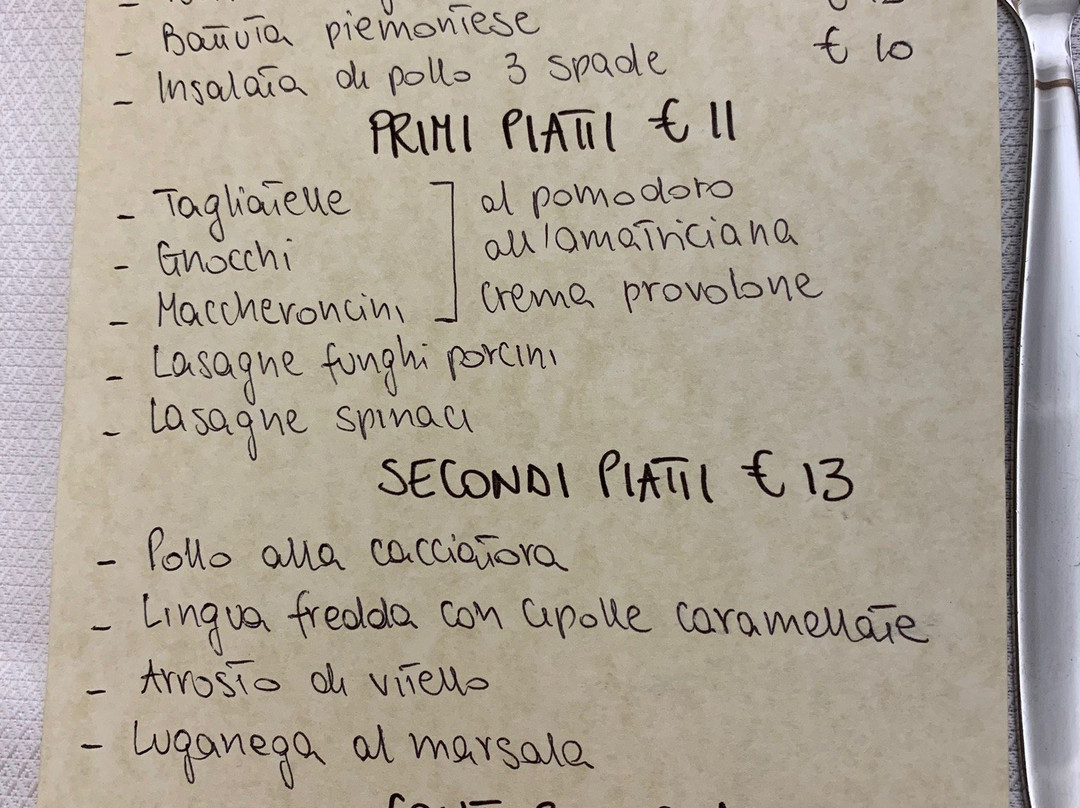 - Battuta piemontese
- Insalata di pollo 3 spade € 10
PRIMI PIATTI € 11
- Tagliatelle al pomodoro
- Gnocchi all'amatriciana
- Maccheroncini crema provolone
- Lasagne funghi porcini
- Lasagne spinaci
SECONDI PIATTI € 13
- Pollo alla cacciatora
- Lingua fredda con cipolle caramellate
- Arrosto di vitello
- Luganega al marsala